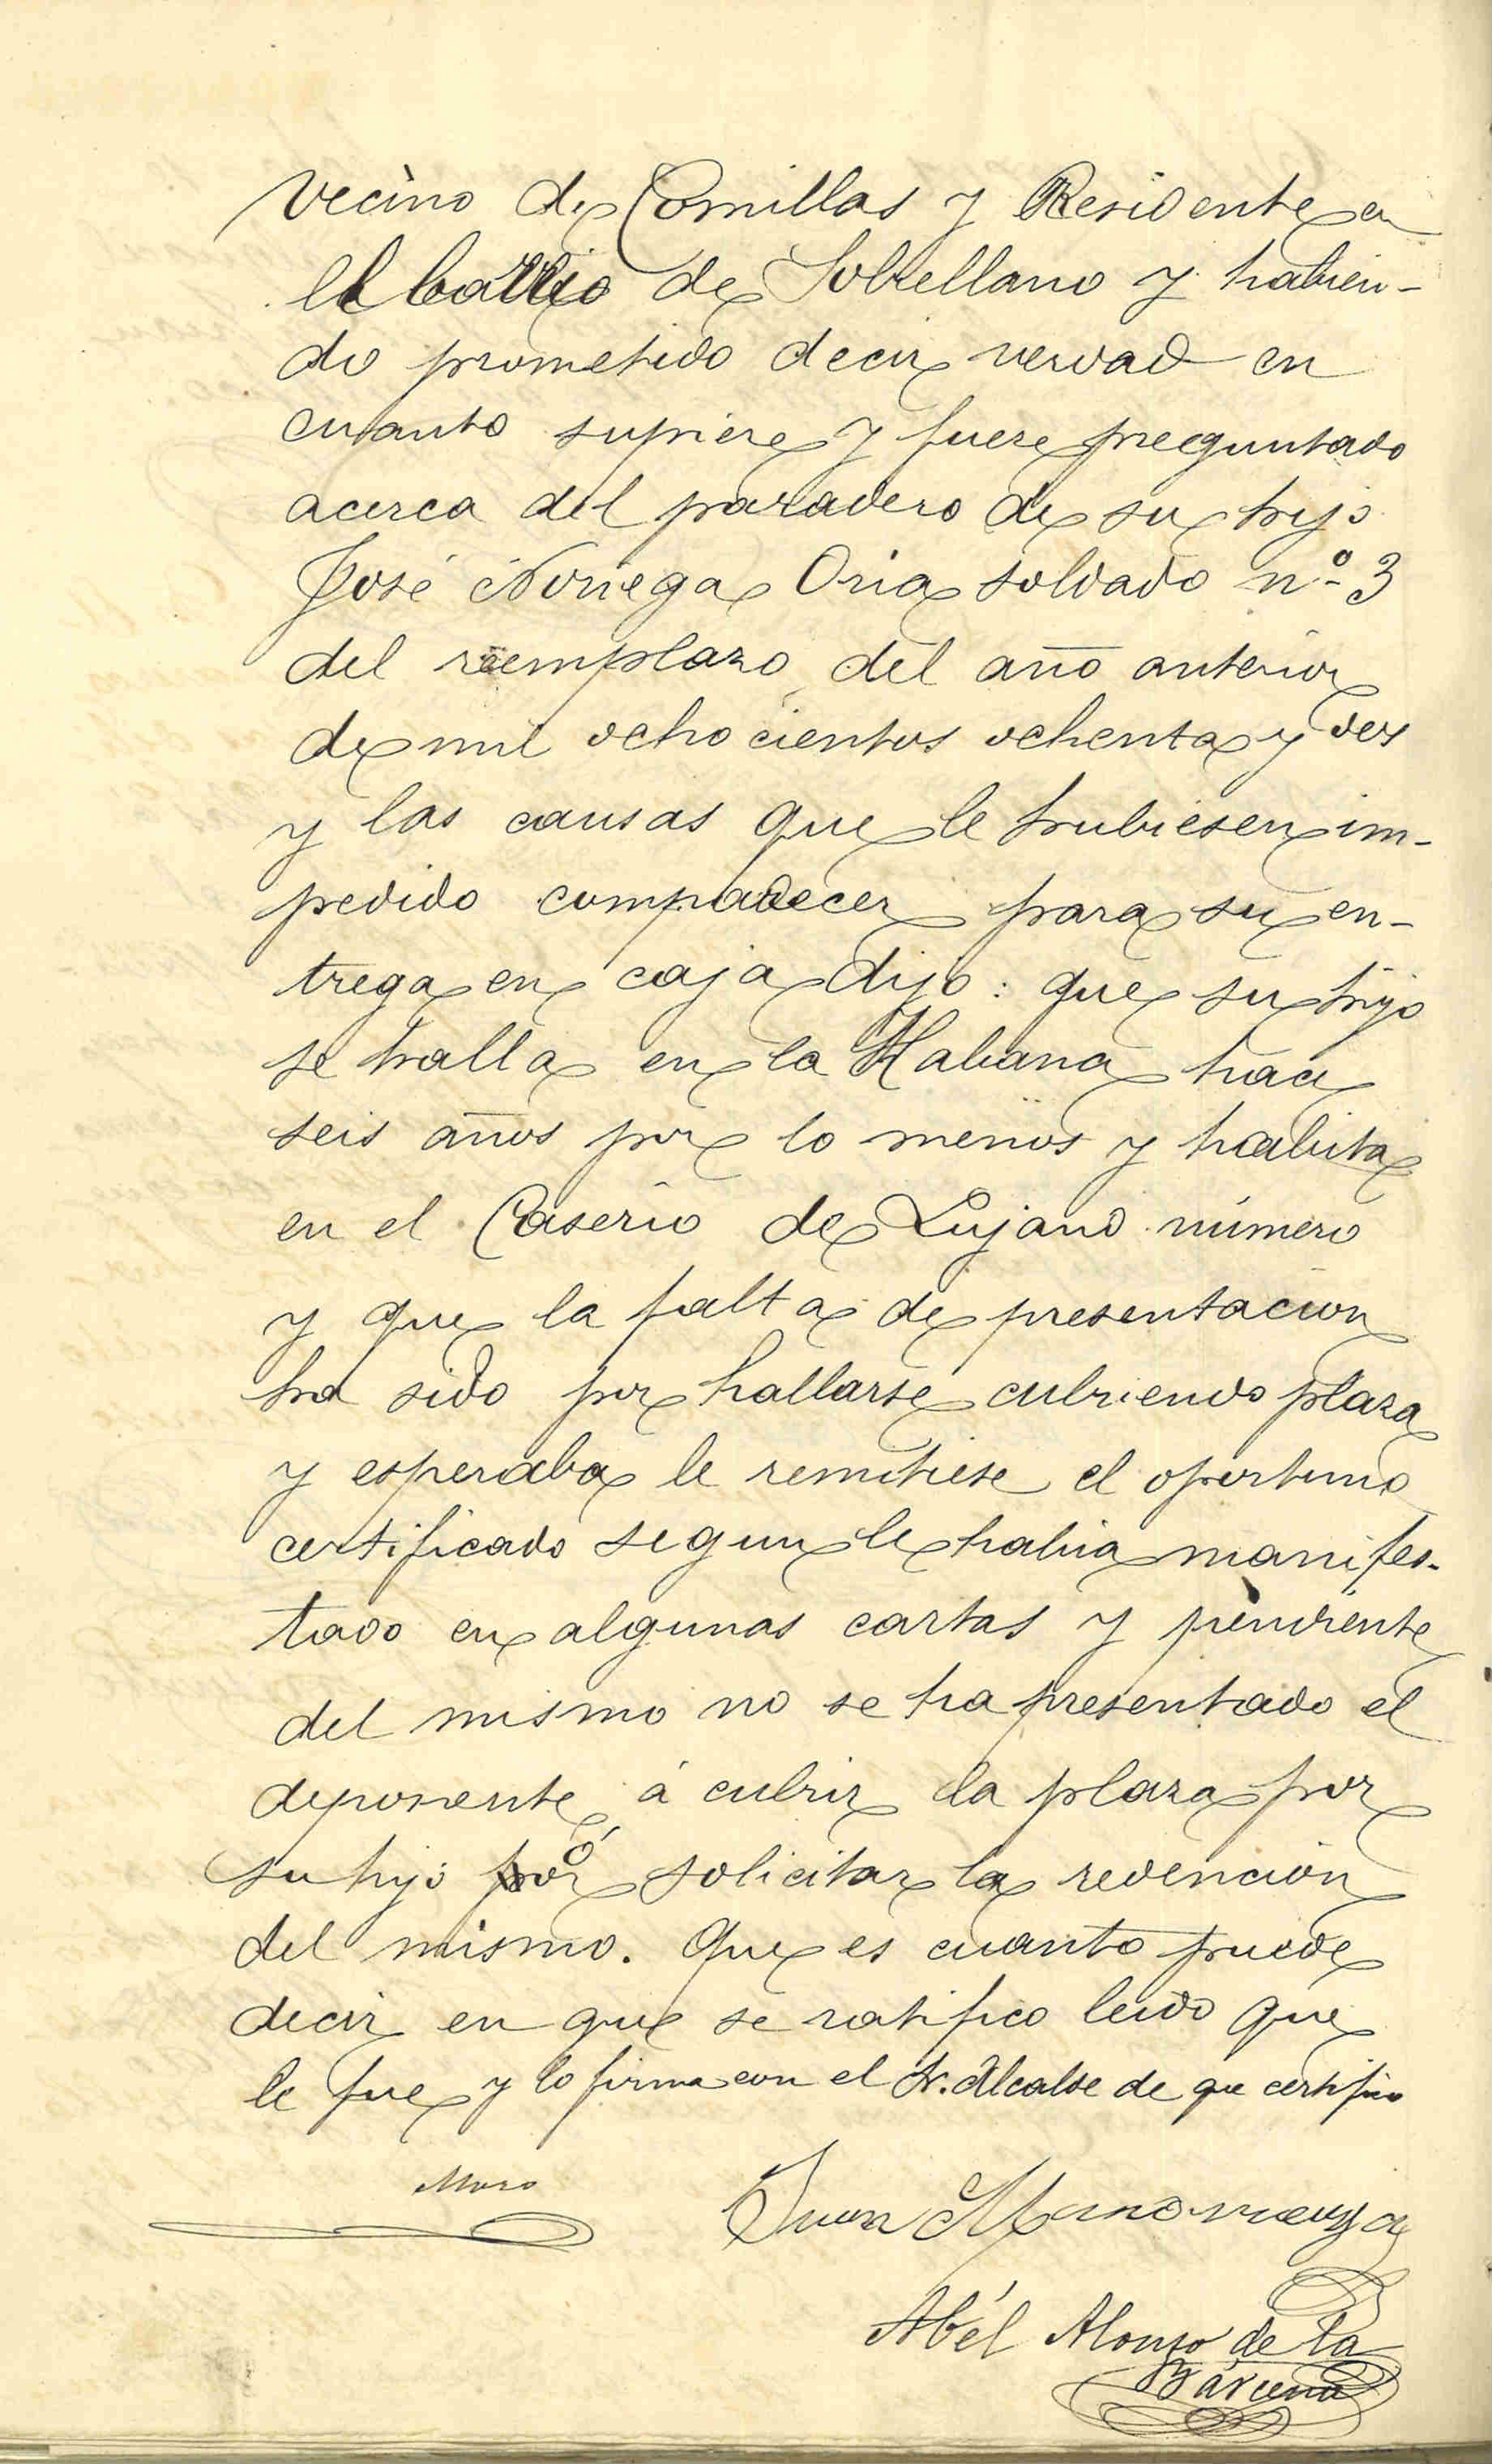 vecino de Comillas y Residente en
el barrio de Sobrellano y habien-
do prometido decir verdad en
cuanto supiere y fuere preguntado
acerca del paradero de su hijo
José Noriega Oria soldado nº 3
del reemplazo del año anterior
de mil ochocientos ochenta y dos
y las causas que le hubiesen im-
pedido comparecer para su en-
trega en caja dijo: que su hijo
se halla en la Habana hace
seis años por lo menos y habita
en el Caserio de Lujano número
y que la falta de presentacion
ha sido por hallarse cubriendo plaza
y esperaba le remitiese el oportuno
certificado segun le habia manifes-
tado en algunas cartas y pendiente
del mismo no se ha presentado el
deponente á cubrir la plaza por
su hijo ó solicitar la redencion
del mismo. Que es cuanto puede
decir en que se ratifico leido que
le fue y lo firma con el Sr. Alcalde de que certifico
Moro
Juan
Abél Alonso de la
Bárcena